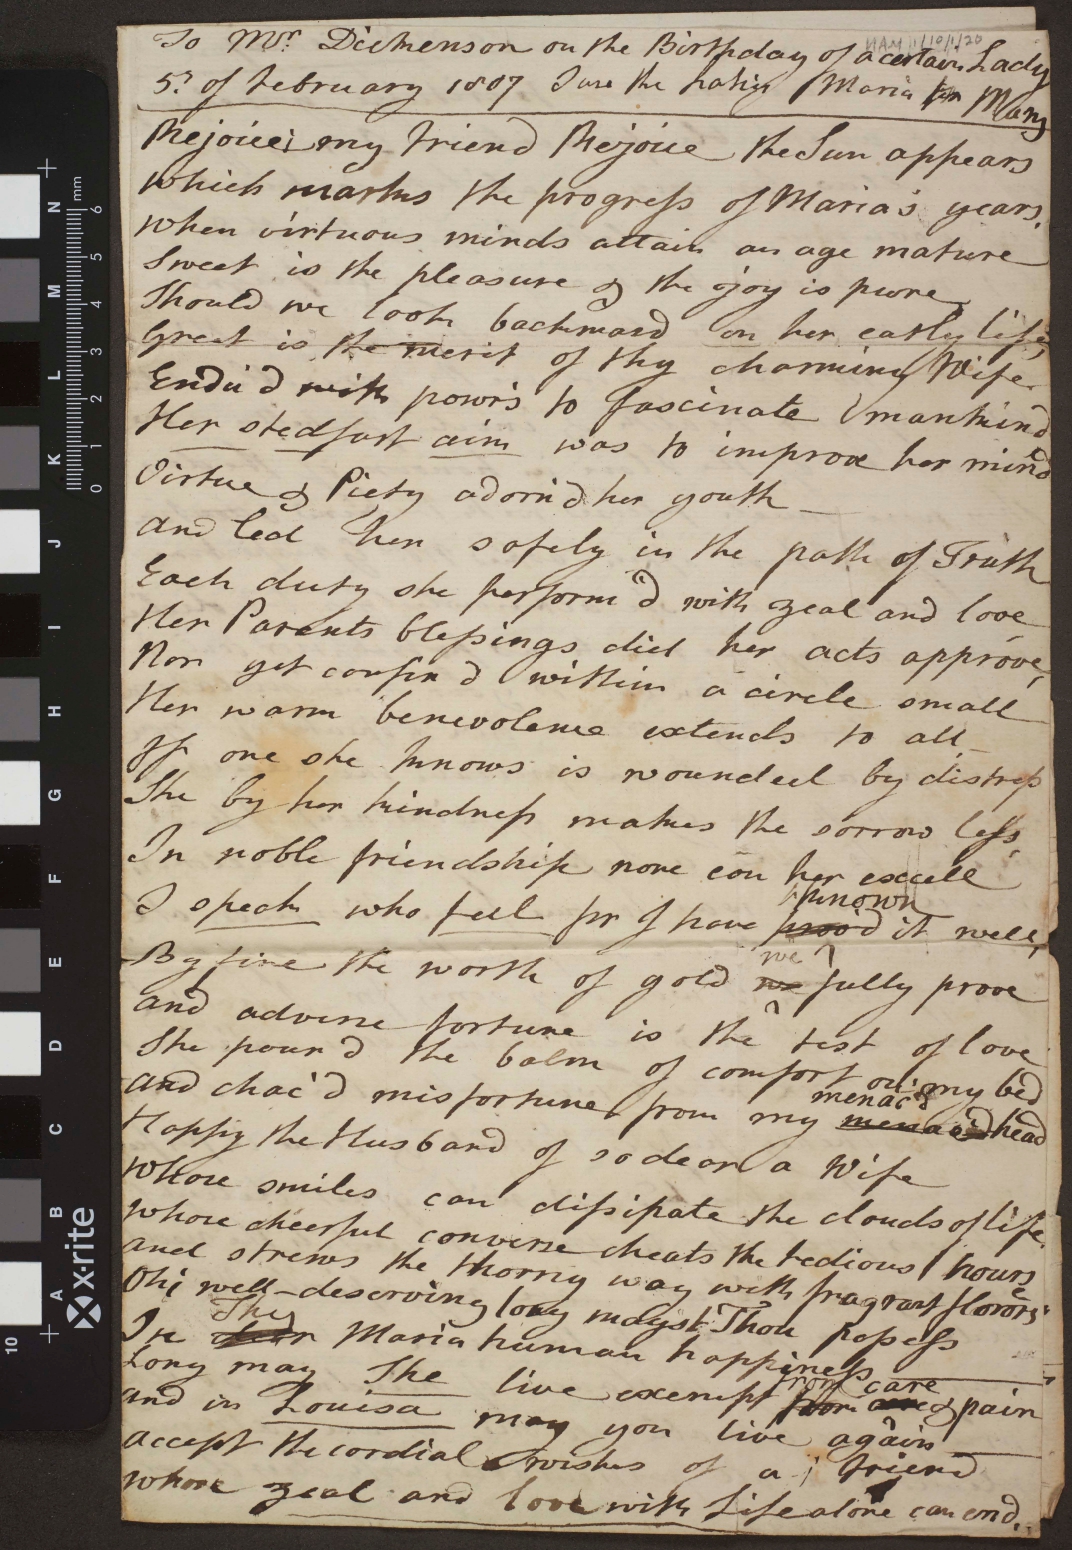 HAM 1/10/1/20
To Mr. Dickenson on the Birthday of a certain Lady
5th of February 1807 I use the Maria for Mary
Rejoice! my friend Rejoice the Sun appears
which marks the progress of Maria's years,
when virtuous minds attain an age mature
Sweet is the pleasure & the joy is pure
Should we look backward on her early life,
Great is the merit of thy charming Wife.
Endu'd with pow'rs to fascinate mankind
Her stedfast aim was to improve her mind
Virtue & Piety adorn'd her youth
and led her safely in the path of Truth
Each duty she perform'd with zeal and love
Her Parents blessings did her acts approve,
Nor yet confin'd within a circle small
Her warm benevolence extends to all
If one she knows is wounded by distress
She by her kindness makes the sorrow less,
In noble friendship none can her excell
known
I speak who feel for I have prov'd it well,
we
By fire the worth of gold we fully prove
and adverse fortune is the test of love
She pour'd the balm of comfort on my bed
menac'd
and chac'd misfortune from my menac'd head
Happy the Husband of so dear a Wife
whose smiles can dissipate the clouds of life.
whose cheerful converse cheats the tedious hours
and strews the thorny way with fragrant flowers
Oh! well-deserving long mayst Thou possess
Thy
In dear Maria human happiness
from care
Long may She live exempt from care & pain
and in Louisa may you live again
accept the cordial wishes of a friend
whose zeal and love with Life alone can end.
mm
0 1 2 3 4 5 6
A B C D E F G H I J K L M N
10
x-rite